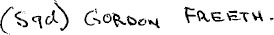 (Sgd) GORDON FREETH.